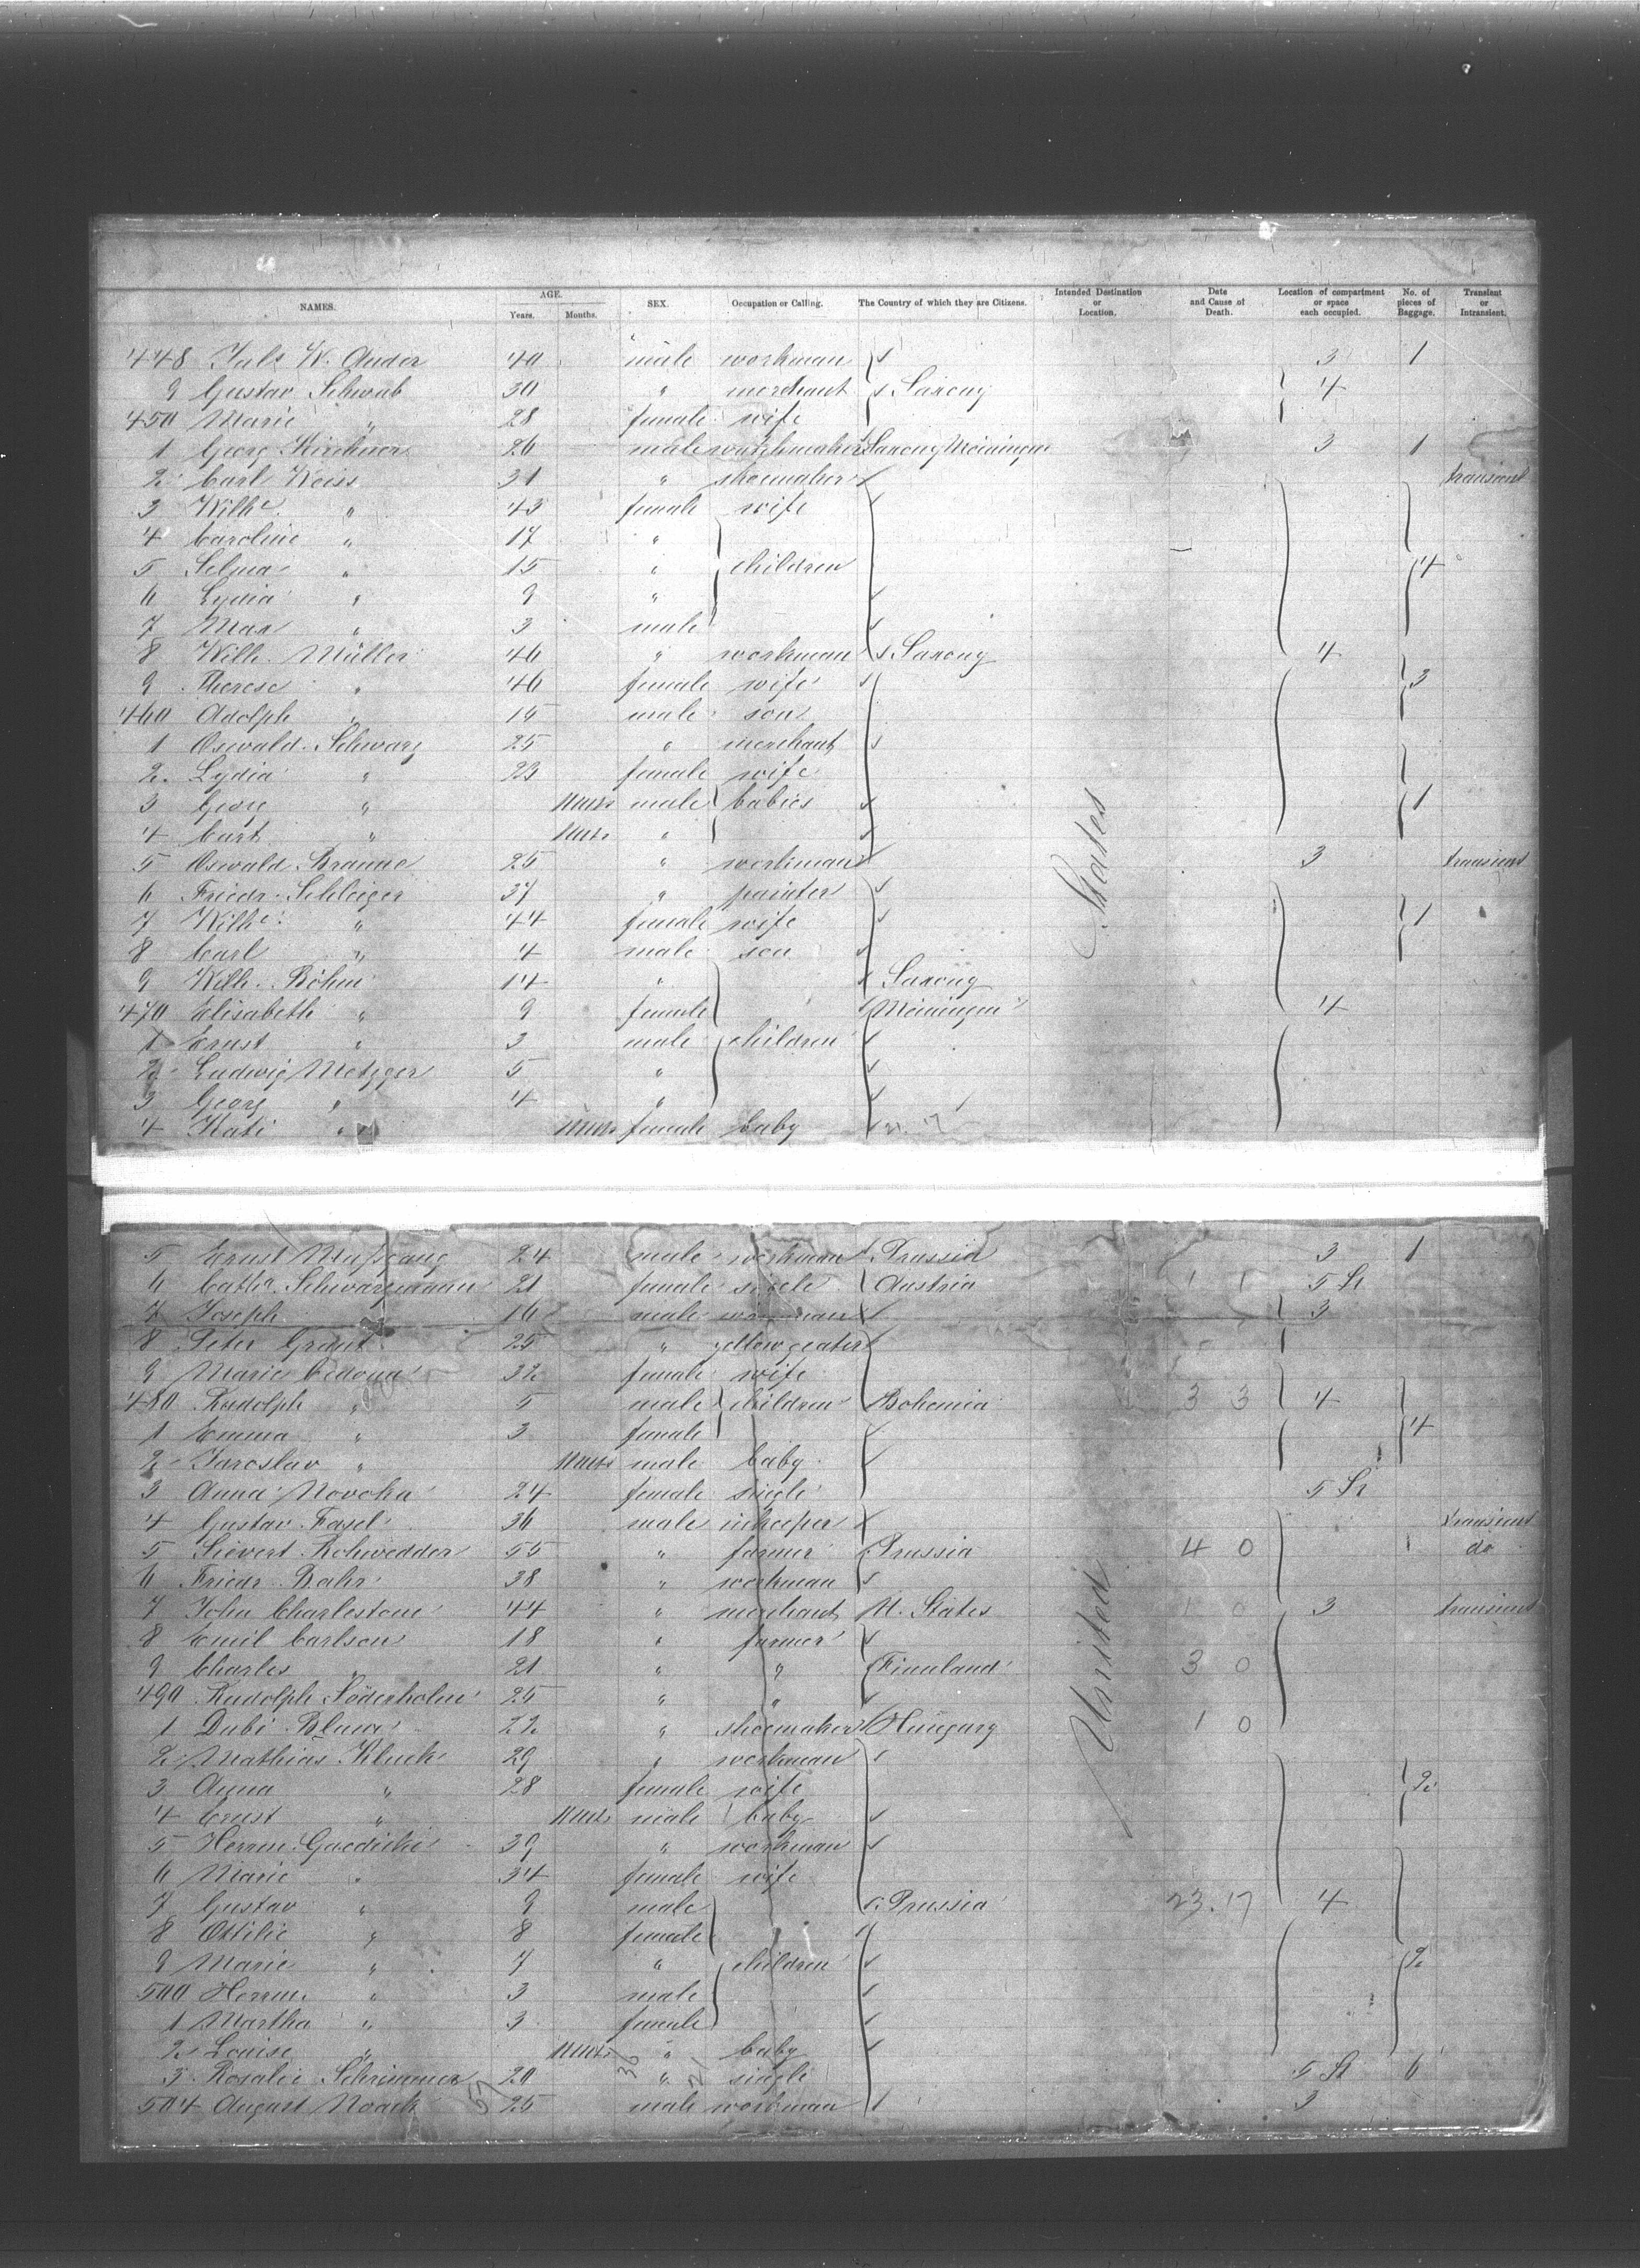 NAMES. AGE. Years. Months. SEX. Occupation or Calling. The Country of which they are Citizens. Intended Destination or Location. Date and Cause of Death. Location of compartment or space each occupied. No. of pieces of Baggage. Transient or Intransient.
448 Juls W. Ander 40 male workman 3 1
9 Gustav Schwab 30 " merchant Saxony 4
450 Marie " 28 female wife
1 Georg Kirchner 26 male watchmaker Saxony Meiningen 3 1
2 Carl Weiss 31 " shoemaker transient
3 Wilhe. " 43 female wife
4 Caroline " 17 "
5 Selma " 15 " children 4
6 Lydia " 9 "
7 Max " 3 male
8 Wilh. Müller 46 " workman Saxony 4
9 Therese " 46 female wife 3
460 Adolph " 15 male son
1 Oswald Schwarz 25 " merchant
2 Lydia " 23 female wife
3 Georg " male babies 1
4 Curt " "
5 Oswald Braune 25 " workman 3 transient
6 Friedr. Schleiger 37 " painter
7 Wilhe. " 44 female wife 1
8 Carl " 4 male son
9 Wilh. Böhm 14 " Saxony
470 Elisabeth " 9 female Meiningen 4
1 Ernst " 3 male children
2 Ludwig Metzger 5 "
3 Georg " 4 "
4 Kati " female baby
States
5 Ernst 24 male workman Prussia 3 1
6 Cathr. Schwarzmann 21 female single Austria 1 1 5 St
7 Joseph 16 male workman 3
8 Peter 25 "
9 Marie 32 female wife
480 Rudolph " 5 male children Bohemia 3 3 4
1 Emma " 3 female 4
2 Jaroslav " male baby
3 Anna Novoka 24 female single 5 St
4 Gustav Fasel 36 male inkeeper transient
5 Sievert Rohwedder 55 " farmer Prussia 4 0 do
6 Friedr. Bahr 38 " workman
7 John Charlestone 44 " merchant U. States 1 0 3 transient
8 Emil Carlson 18 " farmer
9 Charles " 21 " " Finnland 3 0
490 Rudolph Söderholm 25 " "
1 Dubi Blum 22 " shoemaker Hungary 1 0
2 Mathias Kluck 29 " workman
3 Anna " 28 female wife 2
4 Ernst " male baby
5 Herrm. Gaedicke 39 " workman
6 Marie " 34 female wife
7 Gustav " 9 male Prussia 23. 17 4
8 Ottilie " 8 female
9 Marie " 7 " children 2
500 Herrm. " 3 male
1 Martha " 3 female
2 Louise " " baby
3 Rosalie Schrimmer 20 " single 5 St 6
504 August Noack 25 male workman 3
United